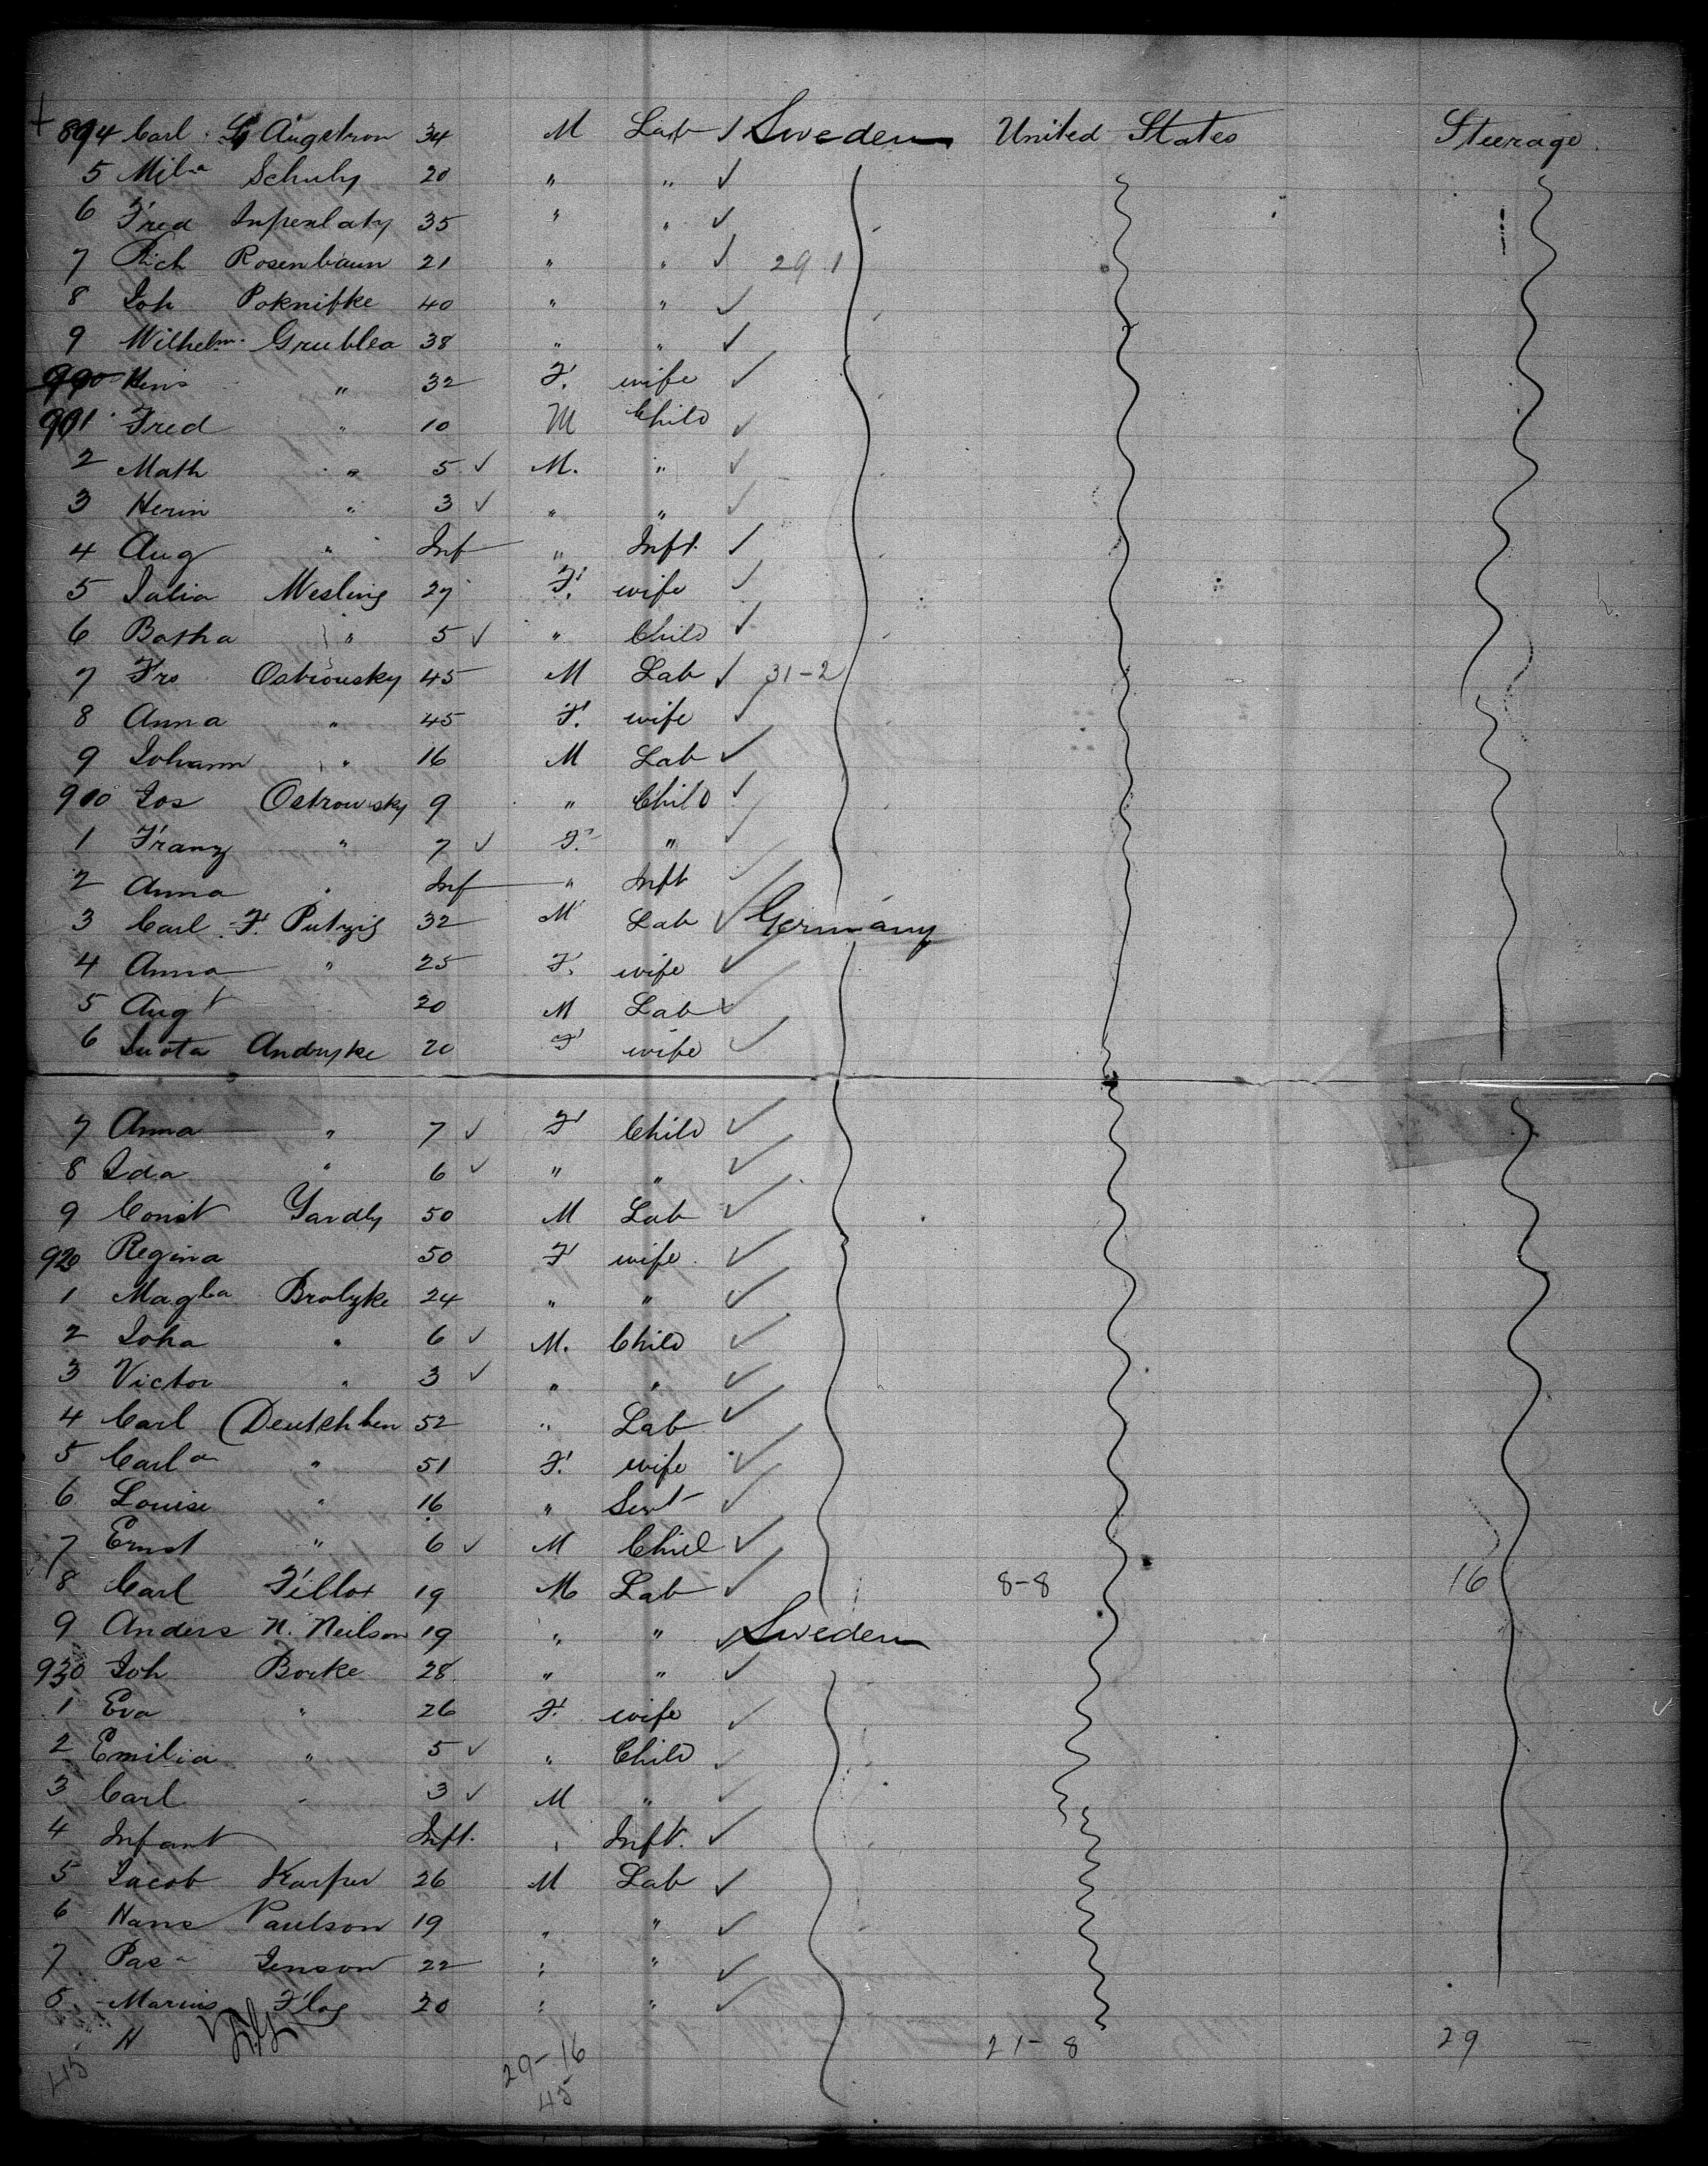 894 Carl G Augstron 34 M Lab ✓ Sweden United States Steerage
5 Mil.a Schuly 20 " " ✓
6 Fred 35 " " ✓
7 Rich Rosenbaun 21 " " ✓ 29 1
8 Joh Poknifke 40 " " ✓
9 Wilhelm. Grublea 38 " " ✓
900 " 32 F. wife ✓
901 Fred " 10 M Child ✓
2 Math " 5 ✓ M. " ✓
3 Herin " 3 ✓ " " ✓
4 Aug " Inf " Inft. ✓
5 Julia Wesling 27 F. wife ✓
6 Batha " 5 ✓ " Child ✓
7 Frs Ostrousky 45 M Lab ✓ 31-2
8 Anna " 45 F. wife ✓
9 Johann " 16 M Lab ✓
910 Jos Ostrowsky 9 " Child ✓
1 Franz " 7 ✓ F. " ✓
2 Anna " Inf " Inft ✓
3 Carl F. Putzig 32 M Lab ✓ Germany
4 Anna " 25 F. wife ✓
5 Augt 20 M Lab ✓
6 Andryke 20 F wife ✓
7 Anna " 7 ✓ F Child ✓
8 Ida " 6 ✓ " " ✓
9 Const Yardly 50 M Lab ✓
920 Regina 50 F wife ✓
1 Magla Brolyke 24 " " ✓
2 Joha " 6 ✓ M. Child ✓
3 Victor " 3 ✓ " " ✓
4 Carl Deutchben 52 " Lab ✓
5 Carla " 51 F. wife ✓
6 Louise " 16 " Sert ✓
7 Ernst " 6 ✓ M Chil ✓
8 Carl Fillox 19 M Lab ✓ 8-8 16
9 Anders N. Neilson 19 " " ✓ Sweden
930 Joh Borke 28 " " ✓
1 Eva " 26 F. wife ✓
2 Emilia " 5 ✓ " Child ✓
3 Carl " 3 ✓ M " ✓
4 Infant Inft. " Inft. ✓
5 Jacob Karfur 26 M Lab ✓
6 Hans Paulson 19 " " ✓
7 Jenson 22 " " ✓
8 Marius Flog 20 " " ✓
H 21-8 29
45 29-16
45